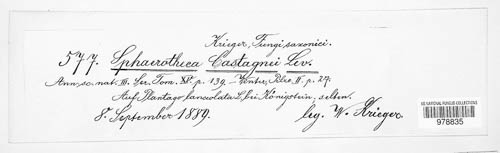 Krieger, Fungi saxonici.
577. Sphaerotheca Castagnei Lev.
Ann. sc. nat. III. Ser. Tom. XV. p. 139. — Winter, Pilze II. p. 27.
Auf Plantago lanceolata L. bei Königstein, selten.
8. September 1889. leg. W. Krieger.
US NATIONAL FUNGUS COLLECTIONS
978835